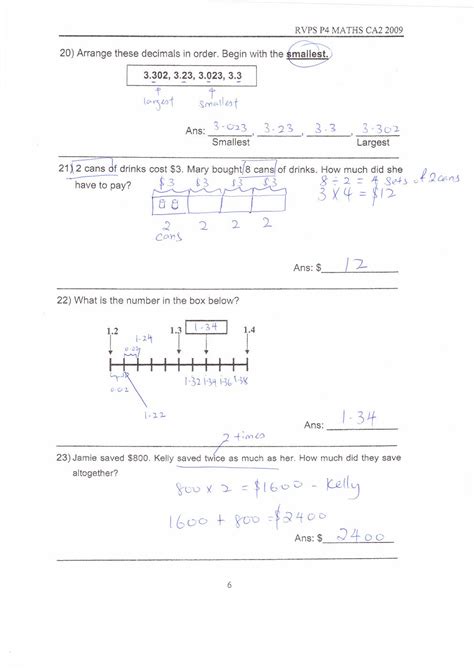 RVPS P4 MATHS CA2 2009
20) Arrange these decimals in order. Begin with the smallest.
3.302, 3.23, 3.023, 3.3
largest smallest
Ans: 3.023, 3.23, 3.3, 3.302
Smallest Largest
21) 2 cans of drinks cost $3. Mary bought 8 cans of drinks. How much did she
have to pay?
$3 $3 $3 $3
8 ÷ 2 = 4 sets of 2 cans
3 x 4 = $12
2 2 2 2
cans
Ans: $ 12
22) What is the number in the box below?
1.2 1.3 1.34 1.4
1.24
0.02
0.02
1.32 1.34 1.36 1.38
1.22
Ans: 1.34
2 times
23) Jamie saved $800. Kelly saved twice as much as her. How much did they save
altogether?
800 x 2 = $1600 - Kelly
1600 + 800 = $2400
Ans: $ 2400
6